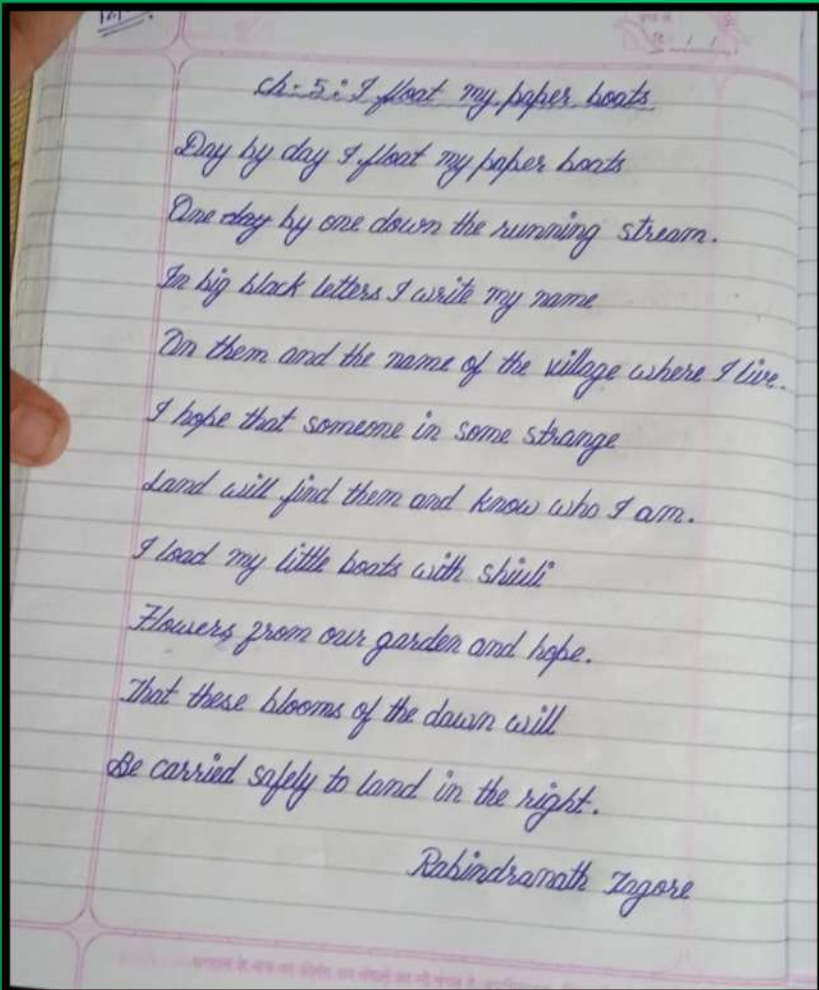 ch:-5: I float my paper boats
Day by day I float my paper boats
One day by one down the running stream.
In big black letters I write my name
On them and the name of the village where I live.
I hope that someone in some strange
Land will find them and know who I am.
I load my little boats with shiuli
Flowers from our garden and hope.
That these blooms of the dawn will
Be carried safely to land in the right.
Rabindranath Tagore